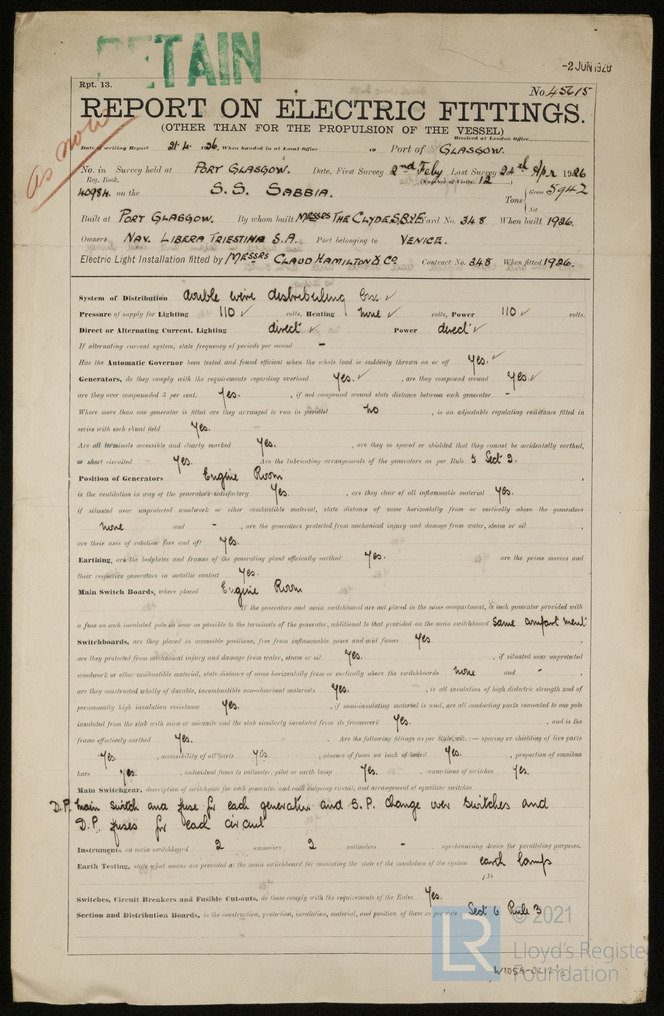 RETAIN
-2 JUN 1926
Rpt. 13.
No. 45615
REPORT ON ELECTRIC FITTINGS.
(OTHER THAN FOR THE PROPULSION OF THE VESSEL)
as now
Received at London Office
Date of writing Report 21.4. 1926. When handed in at Local Office 19 Port of GLASGOW.
No. in Survey held at PORT GLASGOW. Date, First Survey 2nd Feby Last Survey 1926
Reg. Book. (Number of Visits 12)
40984 on the S.S. SABBIA. Tons { Gross 5942
Net
Built at PORT GLASGOW. By whom built MESSRS THE CLYDE S.B.&E. Yard No. 348 When built 1926.
Owners NAV. LIBERA TRIESTINA S.A. Port belonging to VENICE.
Electric Light Installation fitted by MESSRS CLAUD HAMILTON & CO Contract No. 348 When fitted 1926.
System of Distribution double wire distributing ✓
Pressure of supply for Lighting 110 ✓ volts, Heating none ✓ volts, Power 110 ✓ volts.
Direct or Alternating Current, Lighting direct ✓ Power direct ✓
If alternating current system, state frequency of periods per second -
Has the Automatic Governor been tested and found efficient when the whole load is suddenly thrown on or off yes. ✓
Generators, do they comply with the requirements regarding overload yes. ✓, are they compound wound yes. ✓
are they over compounded 5 per cent. yes., if not compound wound state distance between each generator -
Where more than one generator is fitted are they arranged to run in parallel no, is an adjustable regulating resistance fitted in
series with each shunt field yes.
Are all terminals accessible and clearly marked yes., are they so spaced or shielded that they cannot be accidentally earthed,
or short circuited yes. Are the lubricating arrangements of the generators as per Rule 5 Sect 3.
Position of Generators Engine Room
is the ventilation in way of the generators satisfactory yes., are they clear of all inflammable material yes.
if situated near unprotected woodwork or other combustible material, state distance of same horizontally from or vertically above the generators
none and -, are the generators protected from mechanical injury and damage from water, steam or oil
are their axis of rotation fore and aft yes.
Earthing, are the bedplates and frames of the generating plant efficiently earthed yes. are the prime movers and
their respective generators in metallic contact yes.
Main Switch Boards, where placed Engine Room
If the generators and main switchboard are not placed in the same compartment, is each generator provided with
a fuse on each insulated pole as near as possible to the terminals of the generator, additional to that provided on the main switchboard same compartment
Switchboards, are they placed in accessible positions, free from inflammable gases and acid fumes yes
are they protected from mechanical injury and damage from water, steam or oil yes., if situated near unprotected
woodwork or other combustible material, state distance of same horizontally from or vertically above the switchboards none and -
are they constructed wholly of durable, incombustible non-absorbent materials yes., is all insulation of high dielectric strength and of
permanently high insulation resistance yes., if semi-insulating material is used, are all conducting parts connected to one pole
insulated from the slab with mica or micanite and the slab similarly insulated from its framework yes., and is the
frame effectively earthed yes. Are the following fittings as per Rule, viz.:— spacing or shielding of live parts
yes., accessibility of all parts yes, absence of fuses on back of board yes., proportion of omnibus
bars yes., individual fuses to voltmeter, pilot or earth lamp yes., connections of switches yes.
Main Switchgear, description of switchgear for each generator and each outgoing circuit, and arrangement of equalizer switches
D.P. main switch and fuse for each generator and S.P. change over switches and
D.P. fuses for each circuit
Instruments on main switchboard 2 ammeters 2 voltmeters - synchronising device for paralleling purposes.
Earth Testing, state what means are provided at the main switchboard for indicating the state of the insulation of the system earth lamps
Switches, Circuit Breakers and Fusible Cut-outs, do these comply with the requirements of the Rules yes.
Section and Distribution Boards, is the construction, protection, insulation, material, and position of these as per rule Sect 6 Rule 3
LR
© 2021
Lloyd's Register
Foundation